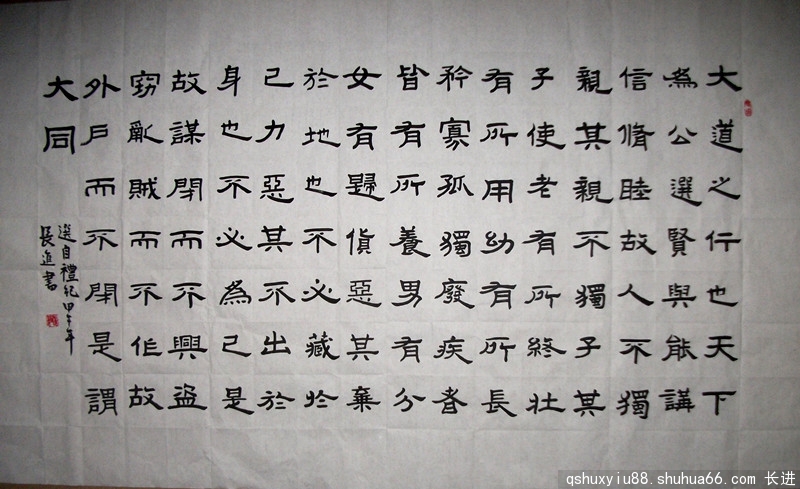 大道之行也天下
為公選賢與能講
信脩睦故人不獨
親其親不獨子其
子使老有所終壯
有所用幼有所長
矜寡孤獨廢疾者
皆有所養男有分
女有歸貨惡其棄
於地也不必藏於
己力惡其不出於
身也不必為己是
故謀閉而不興盜
竊亂賊而不作故
外戶而不閉是謂
大同
選自禮記甲午年
長進書
qshuxyiu88.shuhua66.com 长进